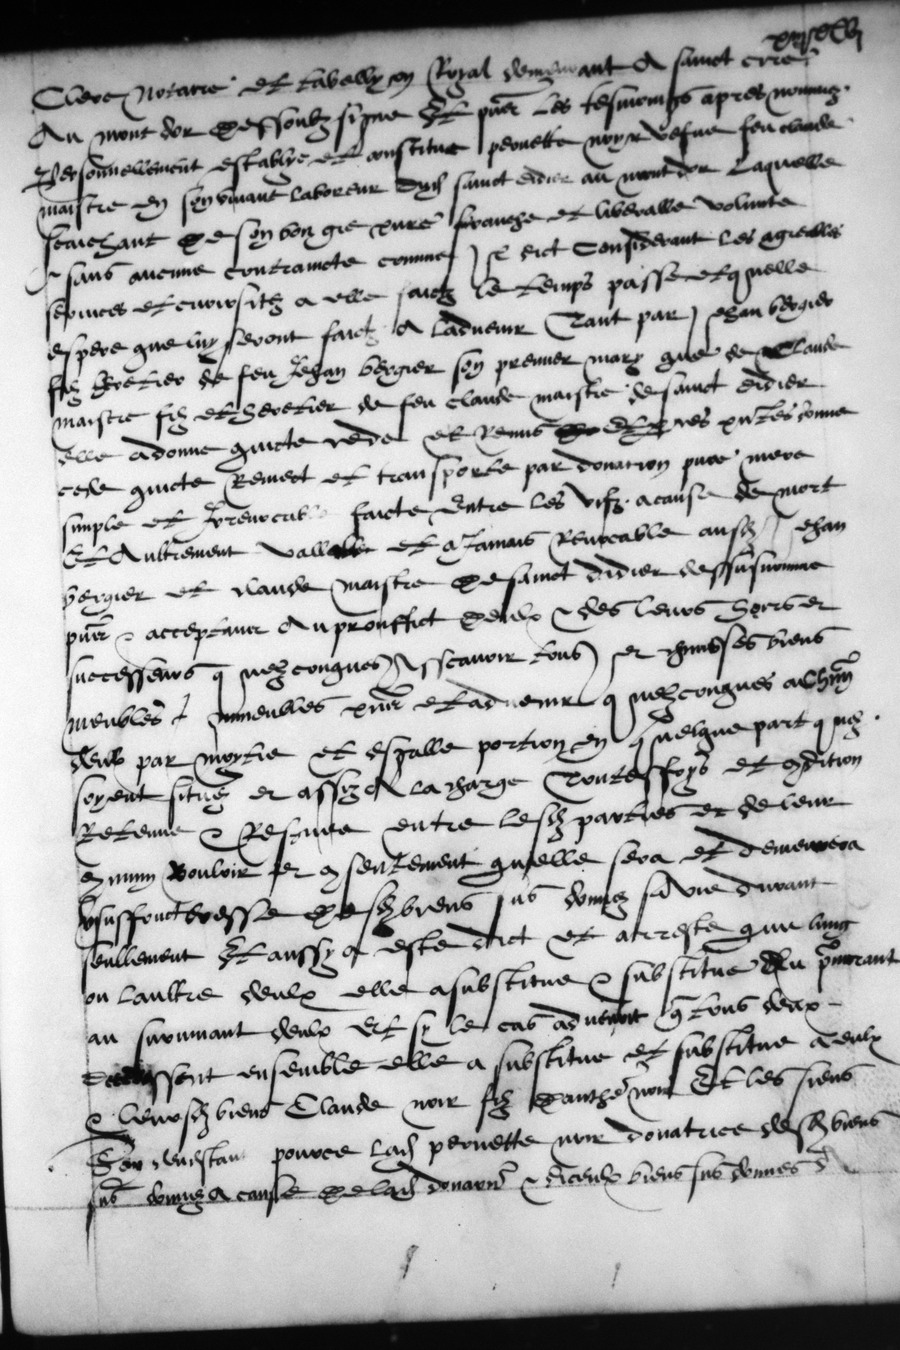 Clerc Notaire et tabellyon Royal demeurant A sainct cire
Au mont dor dessoubz signe Et pnr les tesmoings apres nommez
Personnellement establye et constitue peronette noyr vefve feu claude
maistre en son vivant laboreur dud sainct didier au mont dor Laquelle
scaichant de son bon gre pure franche et liberalle volunte
sans aucune contraincte comme dict Considerant les agreables
services et curiositez a elle faictz le temps passe et quelle
espere que luy seront faictz A ladvenir Tant par Jehan bergier
filz heretier de feu Jehan bergier son premier mary que de Claude
maistre filz et heretier de feu claude maistre de sainct didier
Elle a donne quicte cede et Remis et donne
cede quicte Remect et transporte par donation pure mere
simple et Irrevocable faicte Entre les vifz a cause de mort
Et Aultrement vallable et a Jamais Revocable ausd Jehan
bergier et claude maistre de sainct didier dessusnomme
pnr acceptant Au prouffict deulx et des leurs hoirs et
successeurs quelzconques Asscavoir tous et biens
meubles immeubles pnr et advenir quelzconques
deulx par moytie et esgalle portion en quelque part quilz
soyent situez et assiz A la charge Toutesffoys et condition
Retenue Reservee entre lesd parties et de leur
commun vouloir et consentement quelle sera et demeurera
Usuffructuresse desd biens sus donnez sa vie durant
seullement Et aussy a este dict et arreste que lung
ou laultre deulx elle a substitue et substitue Du pmorant
au survivant deulx Et sy le cas advenoit q tous deux
decedassent ensemble elle a substitue et substitue a eulx
leursd biens Claude noir filz danthe noir Et les siens
Soy devestant pource lad peronette noir donatrice desd biens
sus donnez A cause de lad donation diceulx biens sus donnes